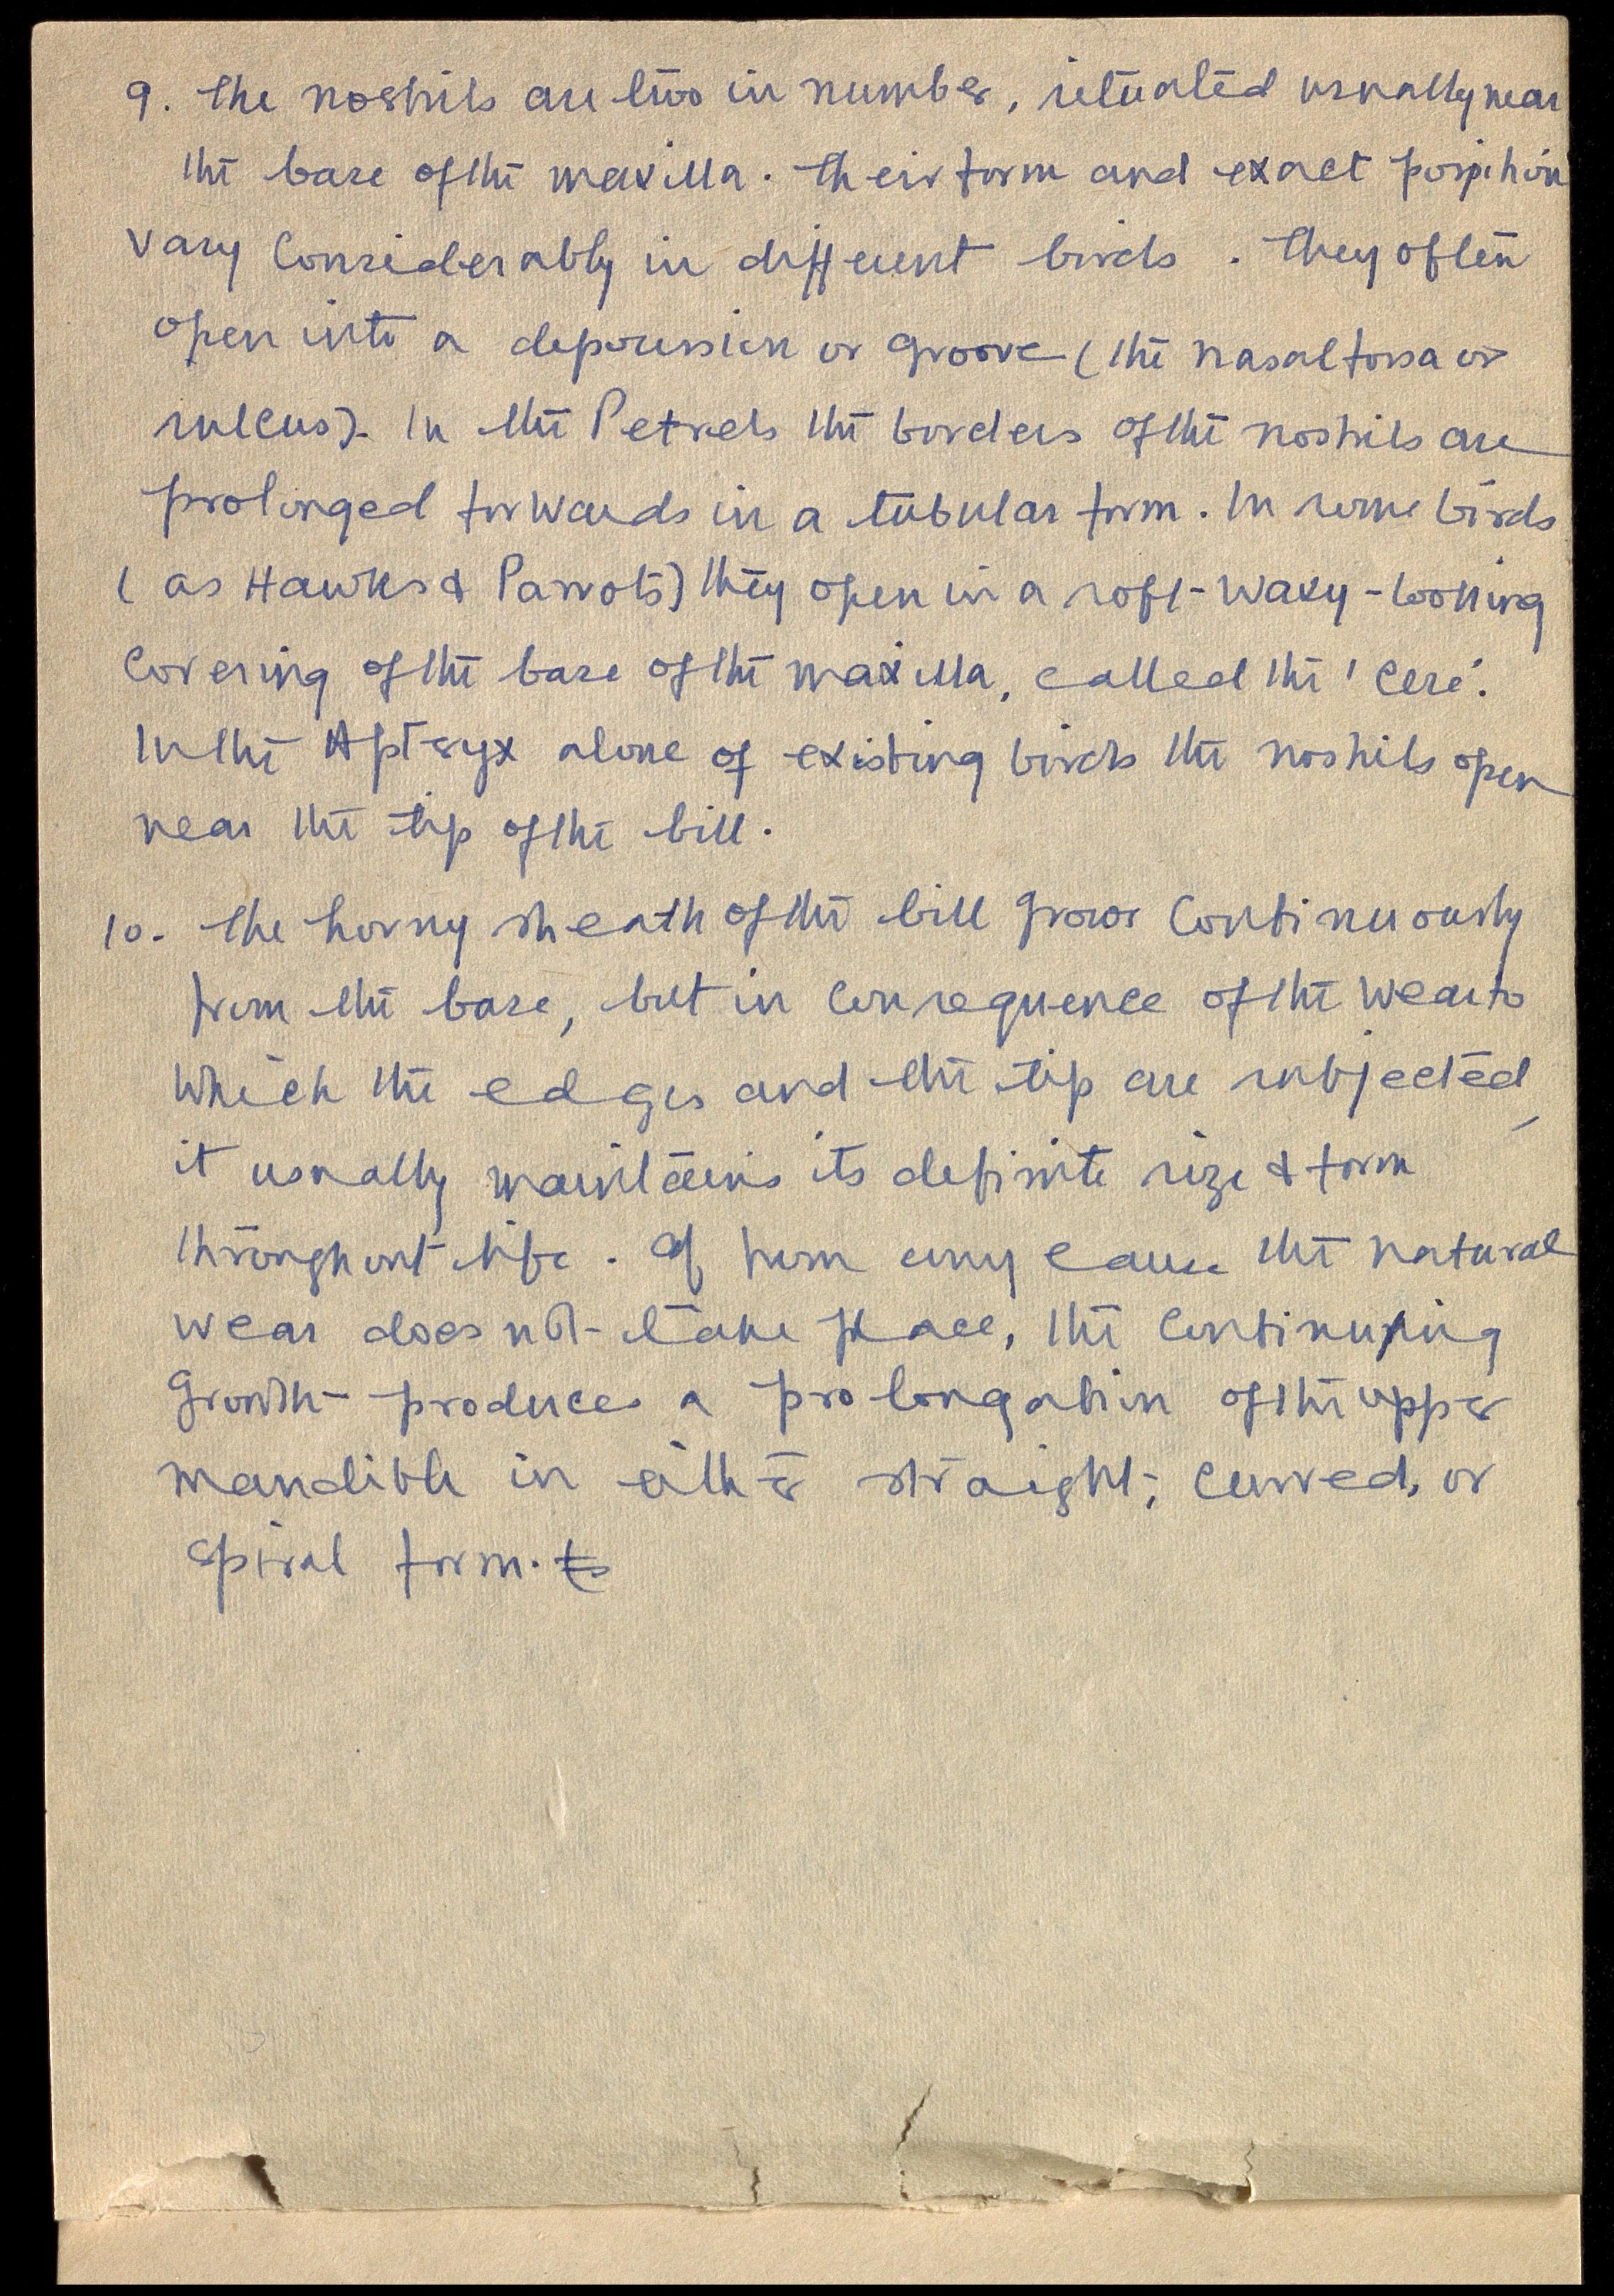 9. The nostrils are two in number, situated usually near
the base of the maxilla. Their form and exact position
vary considerably in different birds. They often
open into a depression or groove (the nasal fossa or
sulcus). In the Petrels the borders of the nostrils are
prolonged forwards in a tubular form. In some birds
(as Hawks & Parrots) they open in a soft-waxy-looking
covering of the base of the maxilla, called the 'cere'.
In the Apteryx alone of existing birds the nostrils open
near the tip of the bill.
10. The horny sheath of the bill grows continuously
from the base, but in consequence of the wear to
which the edges and the tip are subjected,
it usually maintains its definite size & form
throughout life. If from any cause the natural
wear does not take place, the continuing
growth produces a prolongation of the upper
mandible in either straight, curved, or
spiral form.